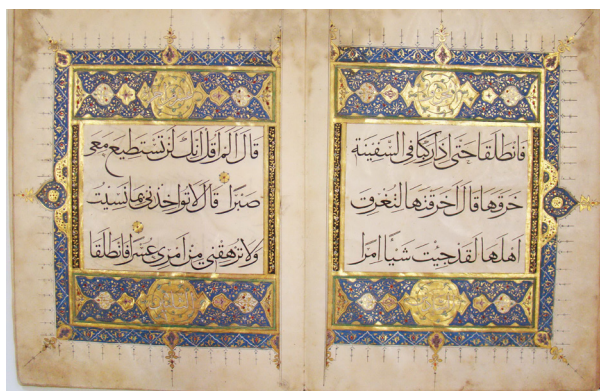 فانطلقا حتى اذا ركبا في السفينة
خرقها قال اخرقتها لتغرق
اهلها لقد جيت شيئا امرا
قال الم اقل انك لن تستطيع معى
صبرا قال لا تواخذنى بما نسيت
ولا ترهقنى من امرى عسرا فانطلقا